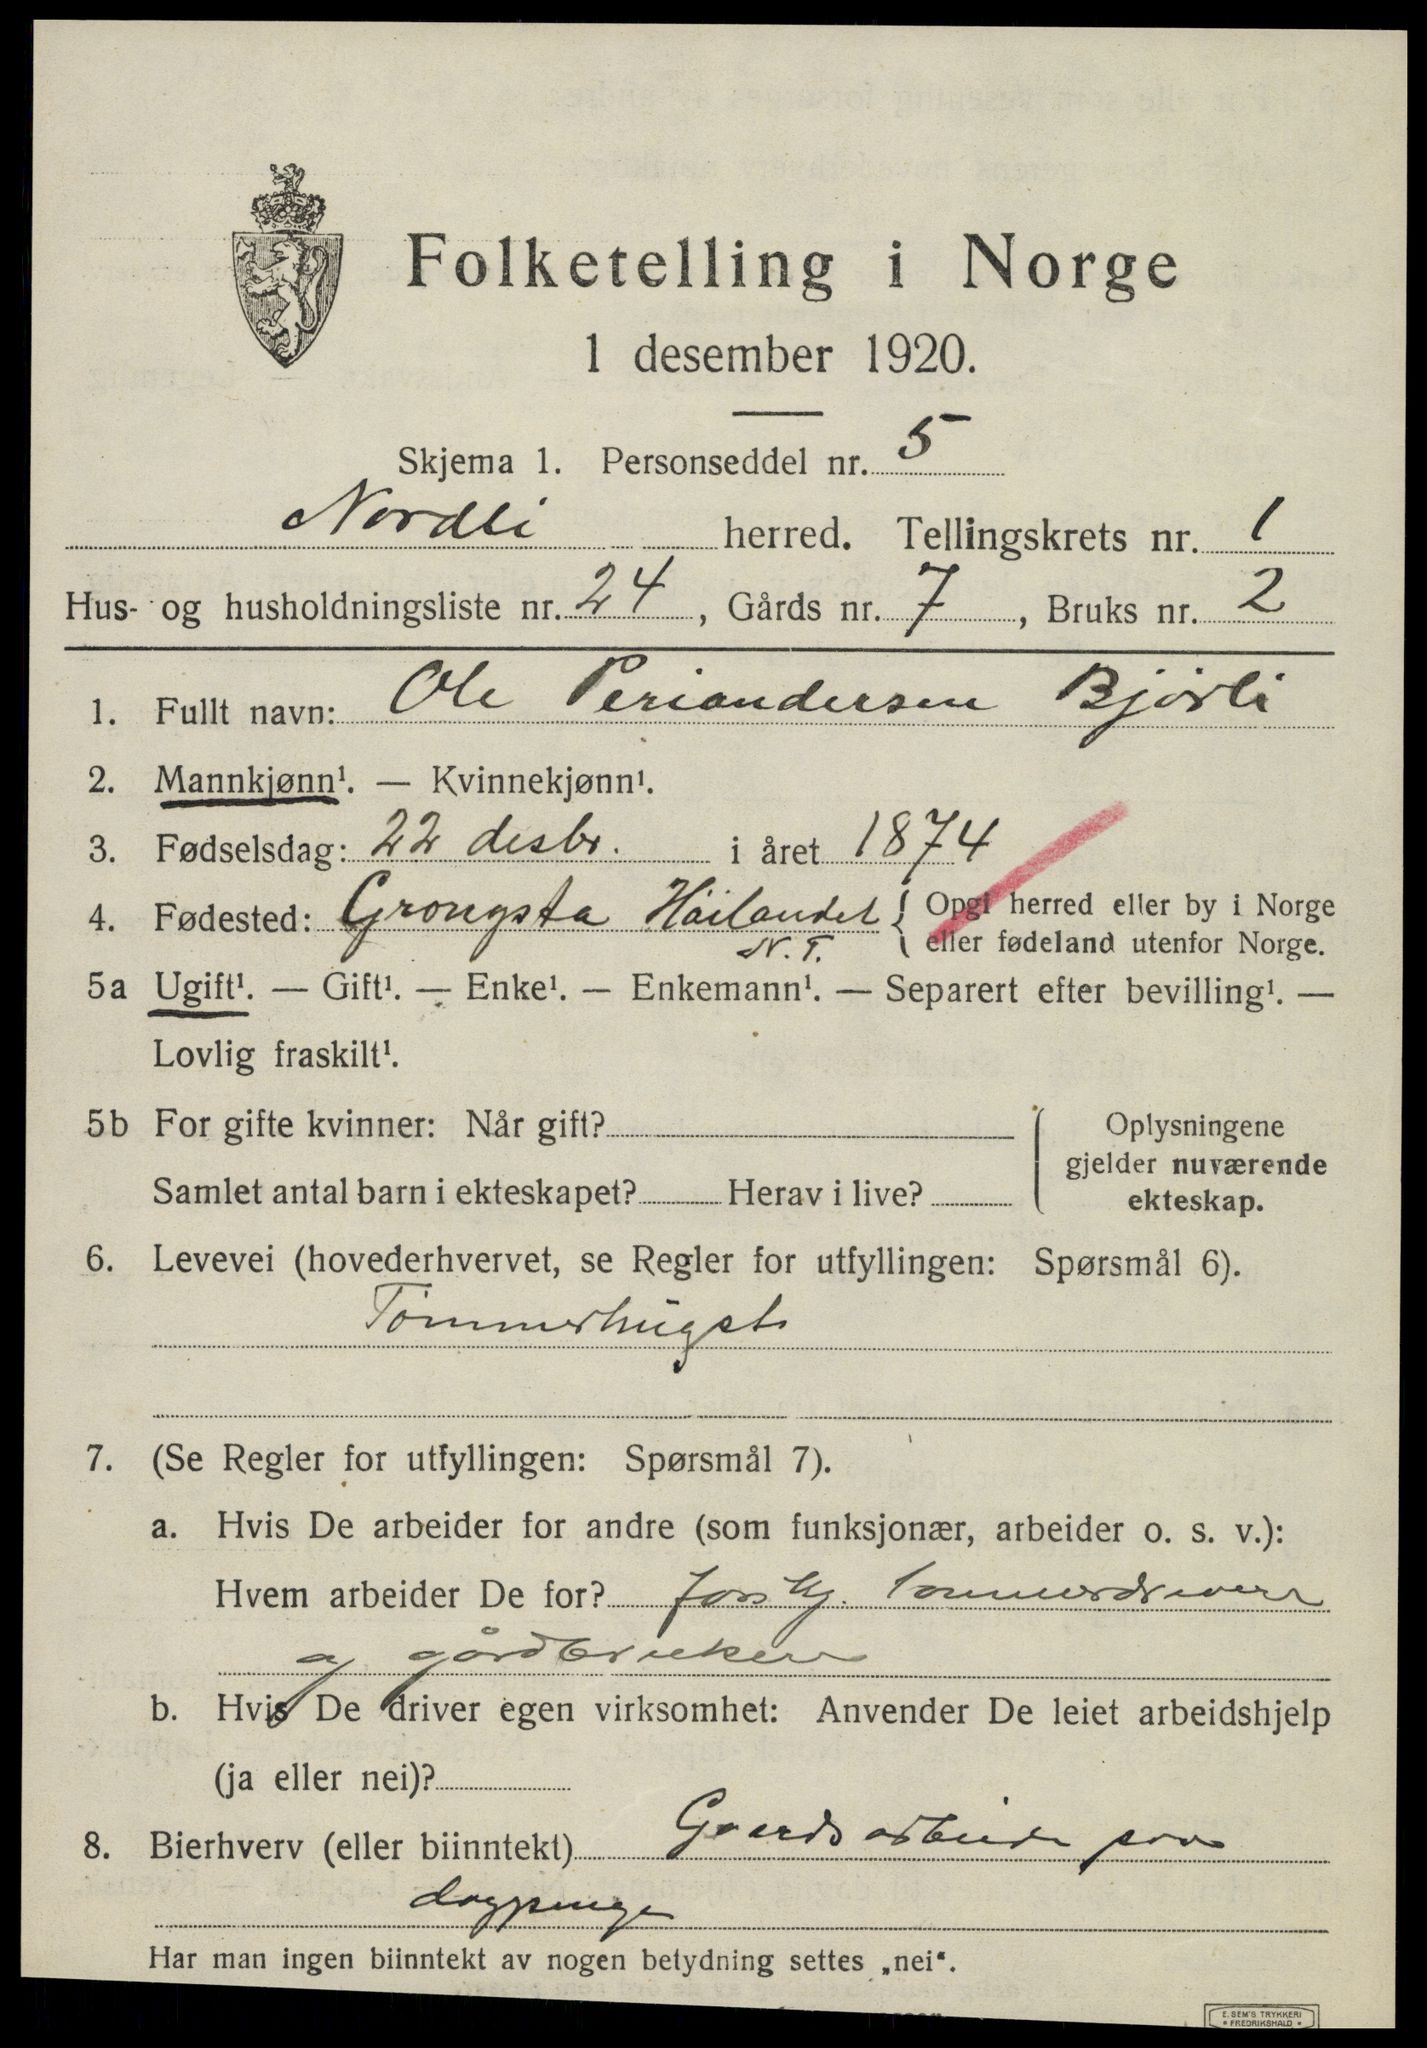 Folketelling i Norge
1 desember 1920.
Skjema 1. Personseddel nr. 5
Nordli herred. Tellingskrets nr. 1
Hus- og husholdningsliste nr. 24, Gårds nr. 7, Bruks nr. 2
1. Fullt navn: Ole Periandersen Bjørli
2. Mannkjønn¹. — Kvinnekjønn¹.
3. Fødselsdag: 22 desbr. i året 1874
4. Fødested: Grongsta Höilandet { Opgi herred eller by i Norge
N. T. eller fødeland utenfor Norge.
5a Ugift¹. — Gift¹. — Enke¹. — Enkemann¹. — Separert efter bevilling¹. —
Lovlig fraskilt¹.
5b For gifte kvinner: Når gift?
Samlet antal barn i ekteskapet? Herav i live?
Oplysningene
gjelder nuværende
ekteskap.
6. Levevei (hovederhvervet, se Regler for utfyllingen: Spørsmål 6).
Tömmerhugst
7. (Se Regler for utfyllingen: Spørsmål 7).
a. Hvis De arbeider for andre (som funksjonær, arbeider o. s. v.):
Hvem arbeider De for? forskj. tømmerdrivere
og gårdbrukere
b. Hvis De driver egen virksomhet: Anvender De leiet arbeidshjelp
(ja eller nei)?
8. Bierhverv (eller biinntekt) Gaardsarbeide paa
dagpenge
Har man ingen biinntekt av nogen betydning settes „nei“.
E. SEM'S TRYKKERI
FREDRIKSHALD